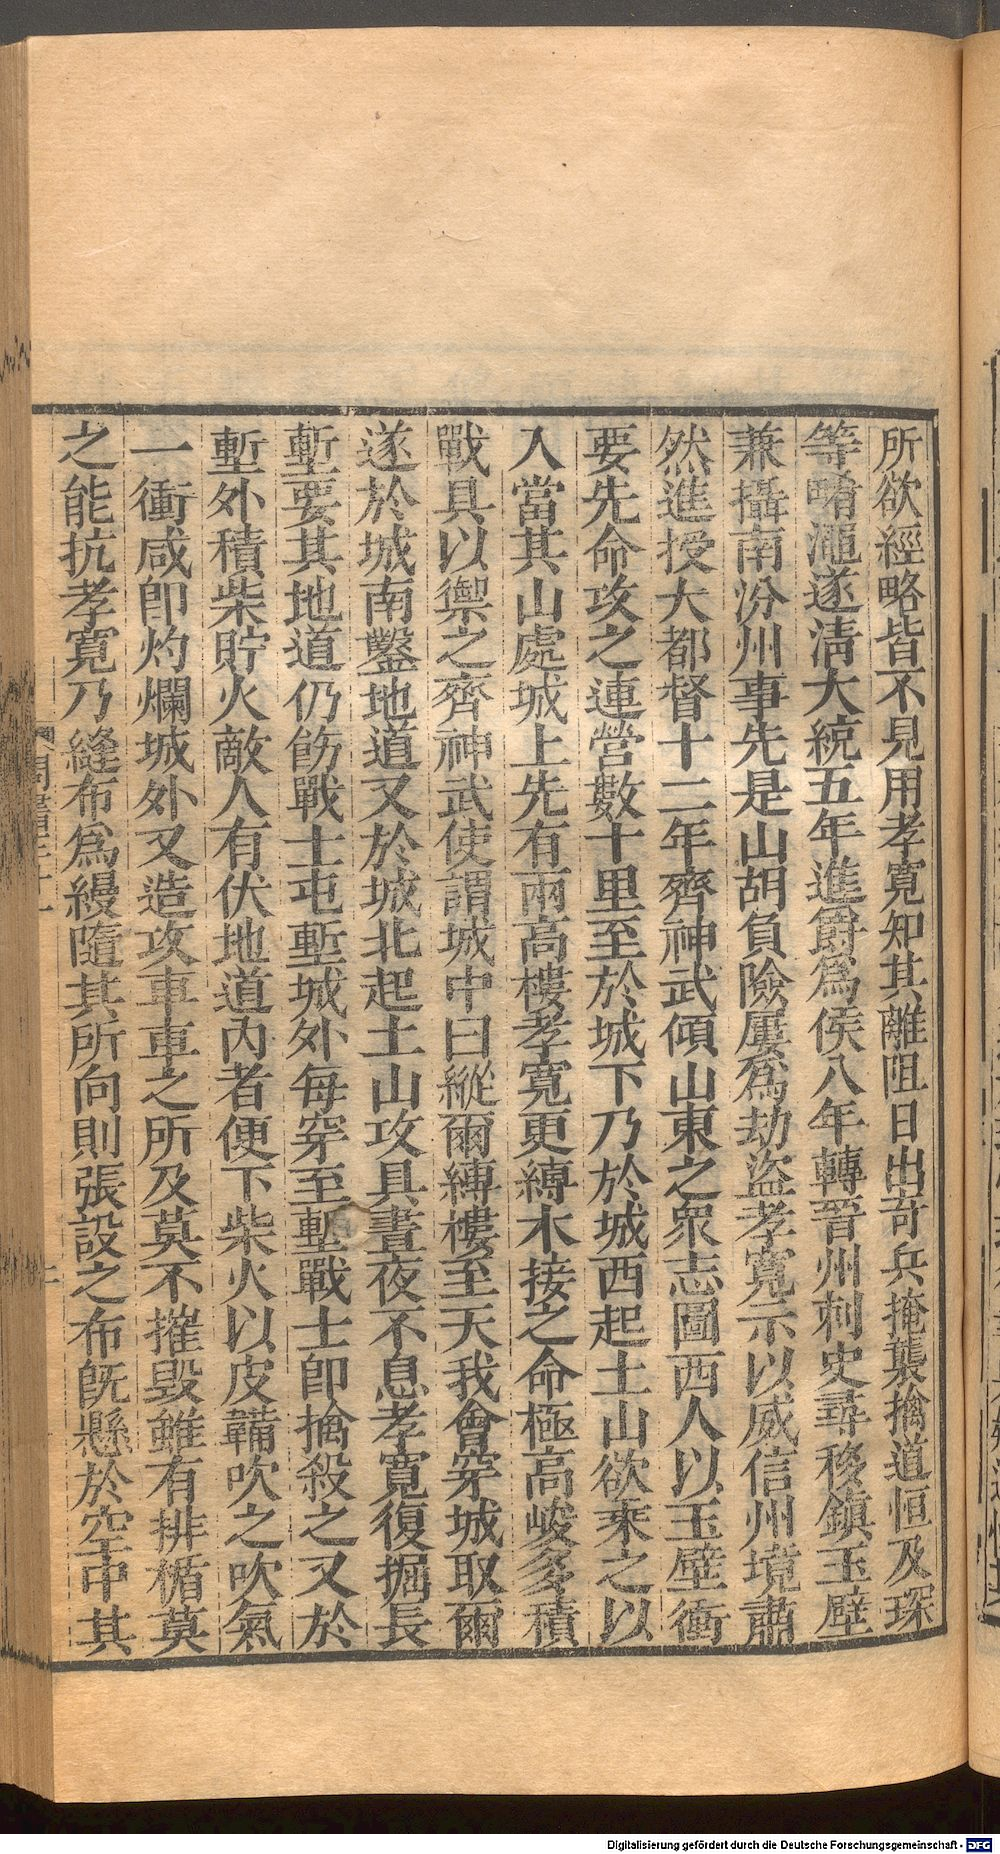 所欲經略皆不見用孝寬知其離阻日出竒兵掩襲擒道恒及琛
等崤澠遂淸大統五年進爵爲侯八年轉晉州刺史尋移鎮玉壁
兼攝南汾州事先是山胡負險屢爲劫盜孝寬示以威信州境肅
然進授大都督十二年齊神武傾山東之衆志圖西人以玉壁衝
要先命攻之連營數十里至於城下乃於城西起土山欲乘之以
入當其山處城上先有兩高樓孝寬更縛木接之命極高峻多積
戰具以禦之齊神武使謂城中曰縱爾縛樓至天我會穿城取爾
遂於城南鑿地道又於城北起土山攻具晝夜不息孝寬復掘長
塹要其地道仍飭戰士屯塹城外每穿至塹戰士卽擒殺之又於
塹外積柴貯火敵人有伏地道內者便下柴火以皮韛吹之吹氣
一衝咸卽灼爛城外又造攻車車之所及莫不摧毀雖有排楯莫
之能抗孝寬乃縫布爲縵隨其所向則張設之布旣懸於空中其
Digitalisierung gefördert durch die Deutsche Forschungsgemeinschaft - DFG